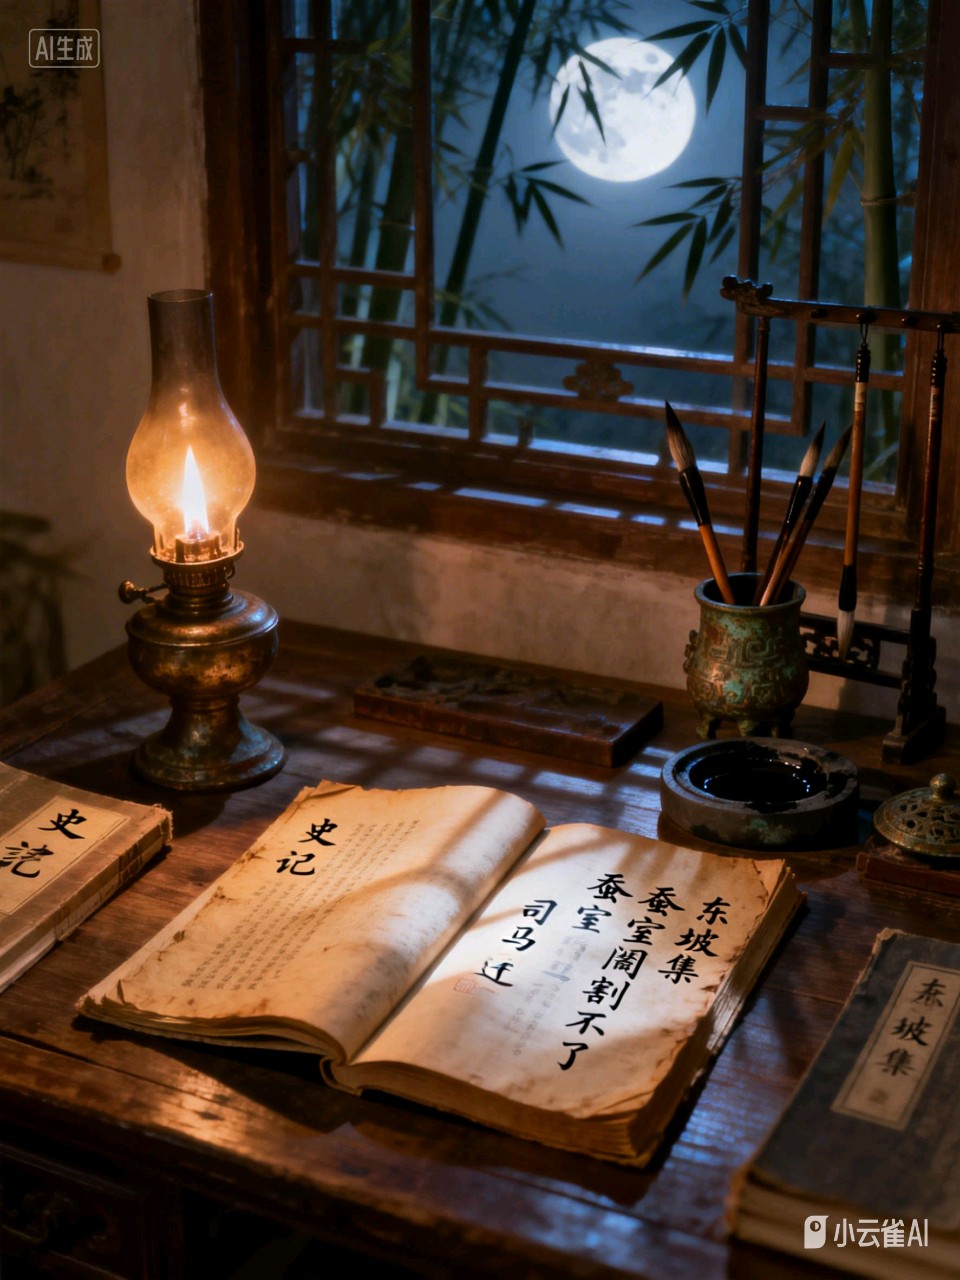 AI生成
史
史记
东坡集
蚕室閤割不了
蚕室
司马迁
坡集
小云雀AI